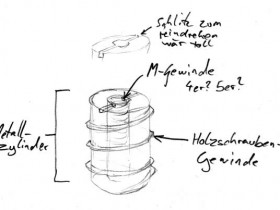 Schlitz zum
reindrehen
wär toll
M-Gewinde
4er? 5er?
Metall-
zylinder
Holzschrauben-
Gewinde